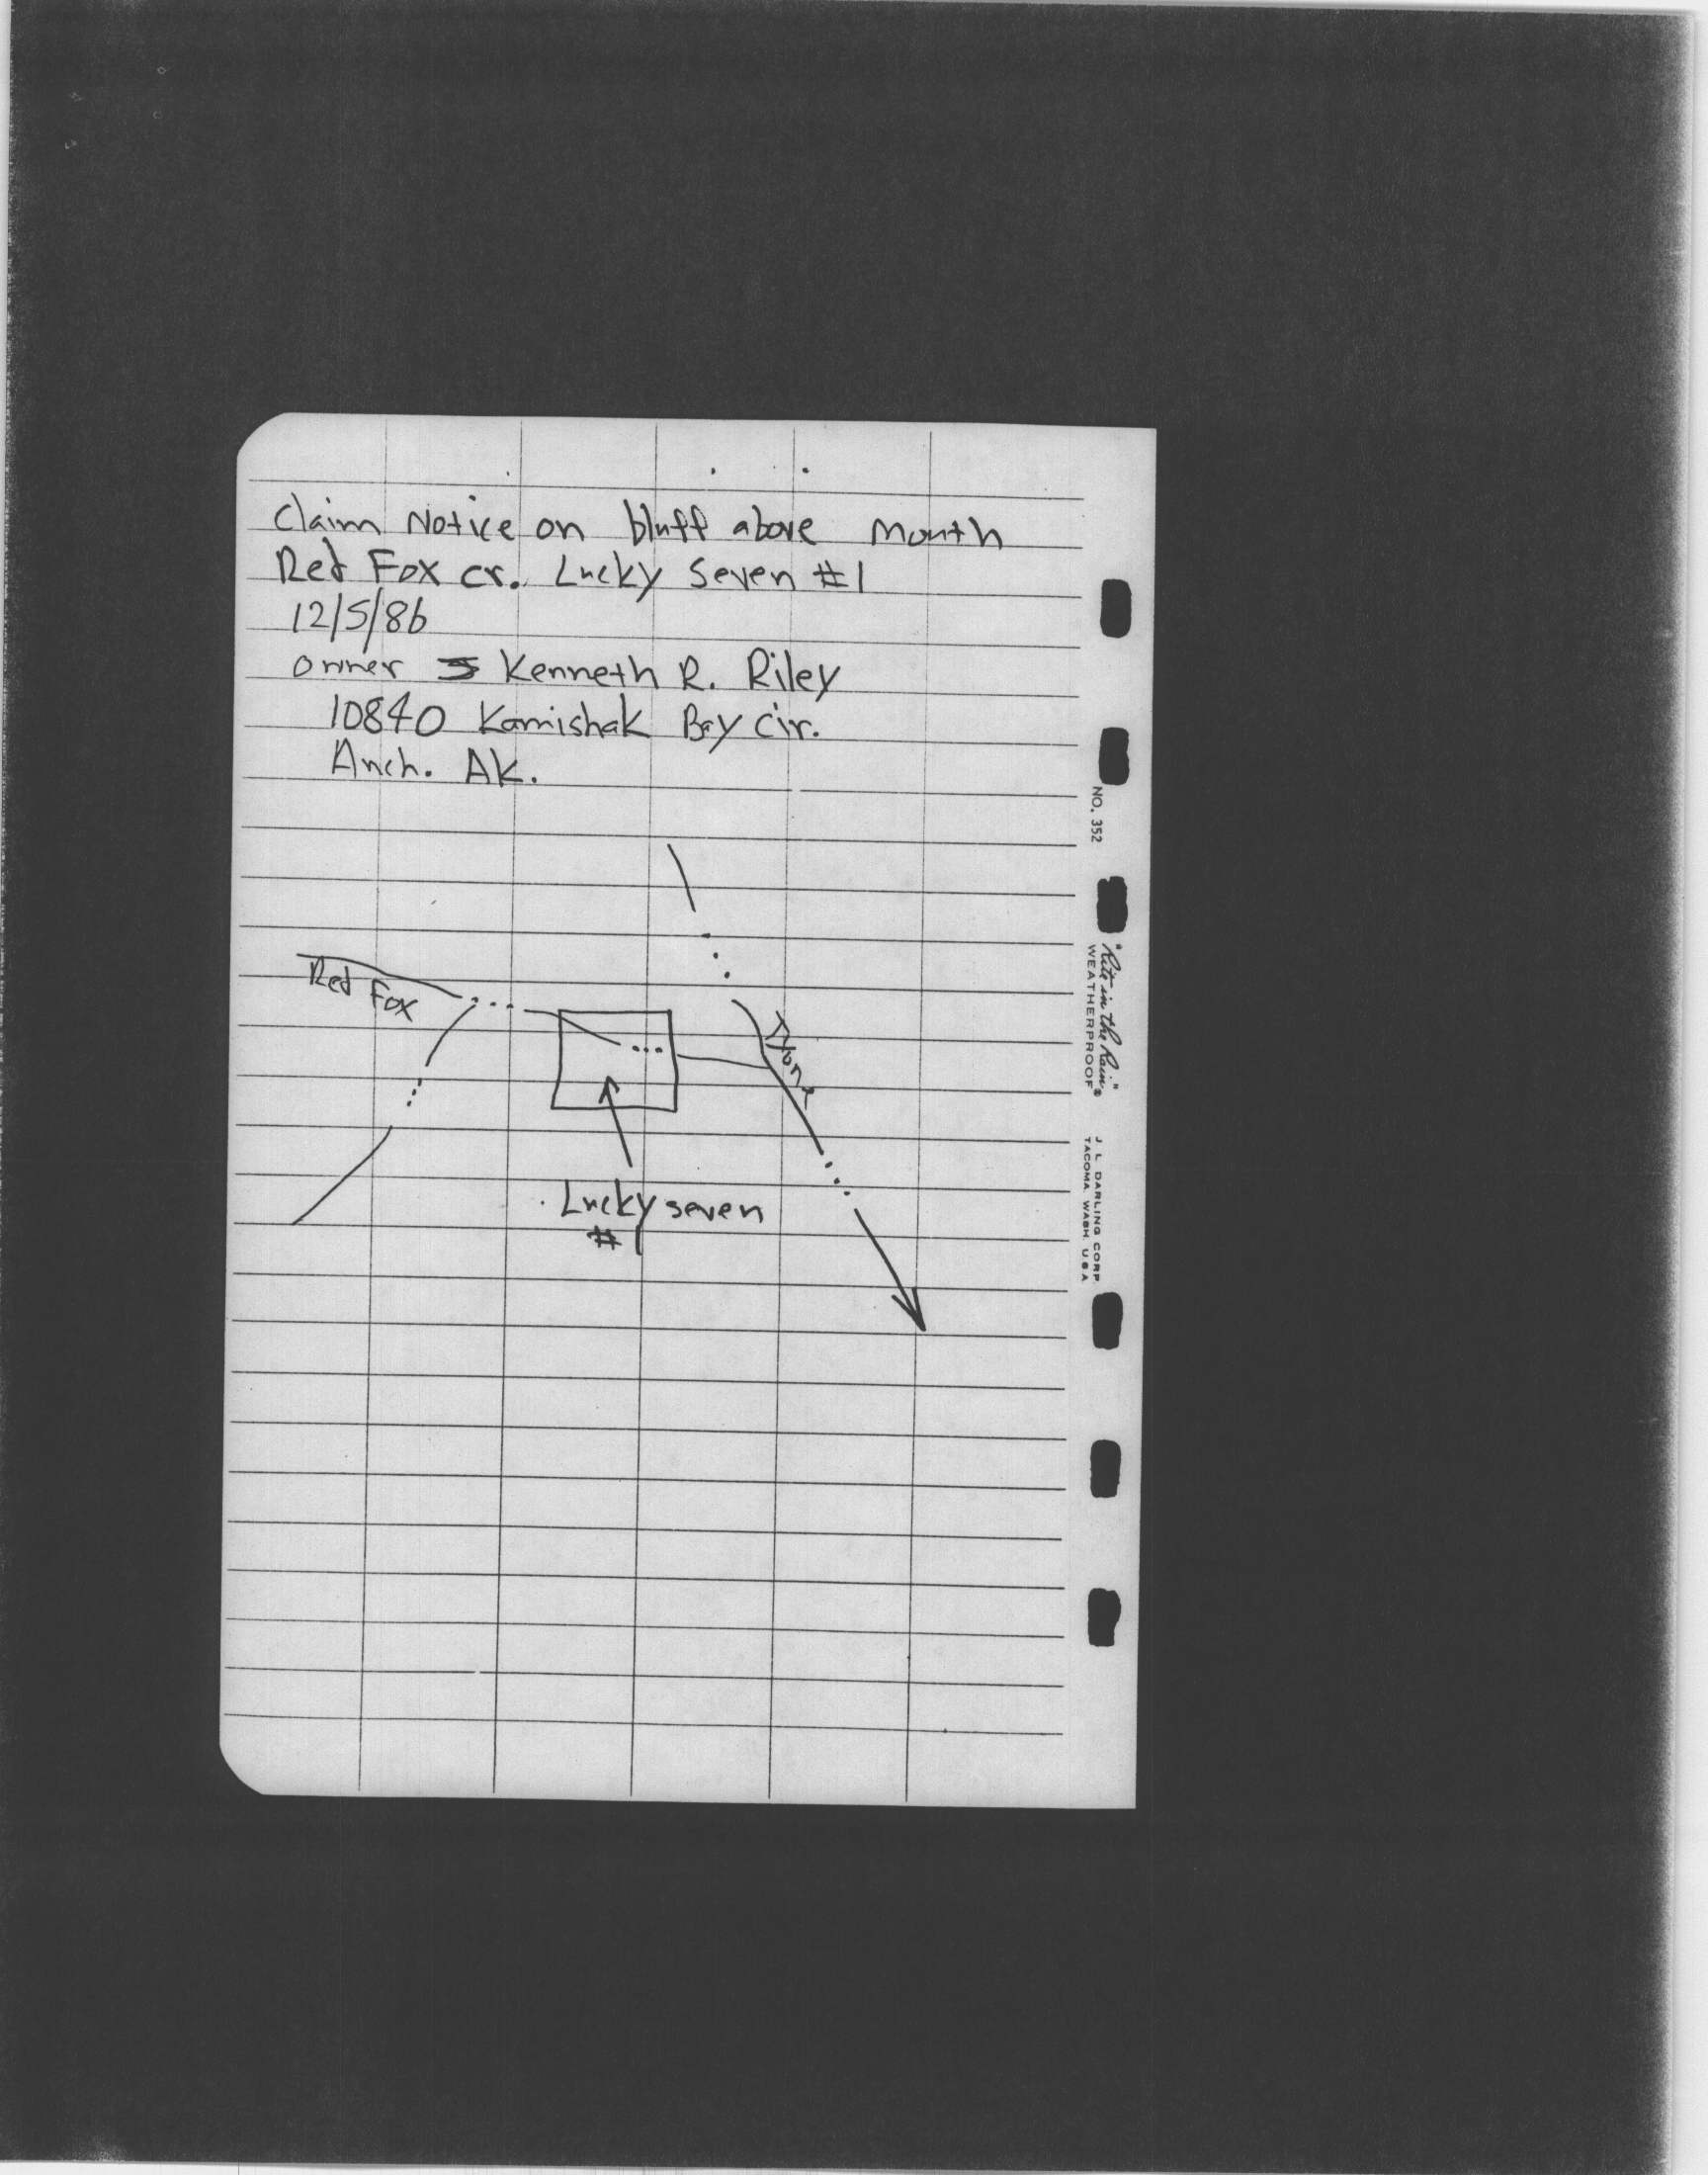 Claim Notice on bluff above Mouth
Red Fox cr. Lucky Seven #1
12/5/86
owner Kenneth R. Riley
10840 Kamishak Bay Cir.
Anch. AK.
Red Fox
Tyone
Lucky seven
#1
NO. 352
"Rite in the Rain"®
WEATHERPROOF
J. L. DARLING CORP.
TACOMA WASH. U.S.A